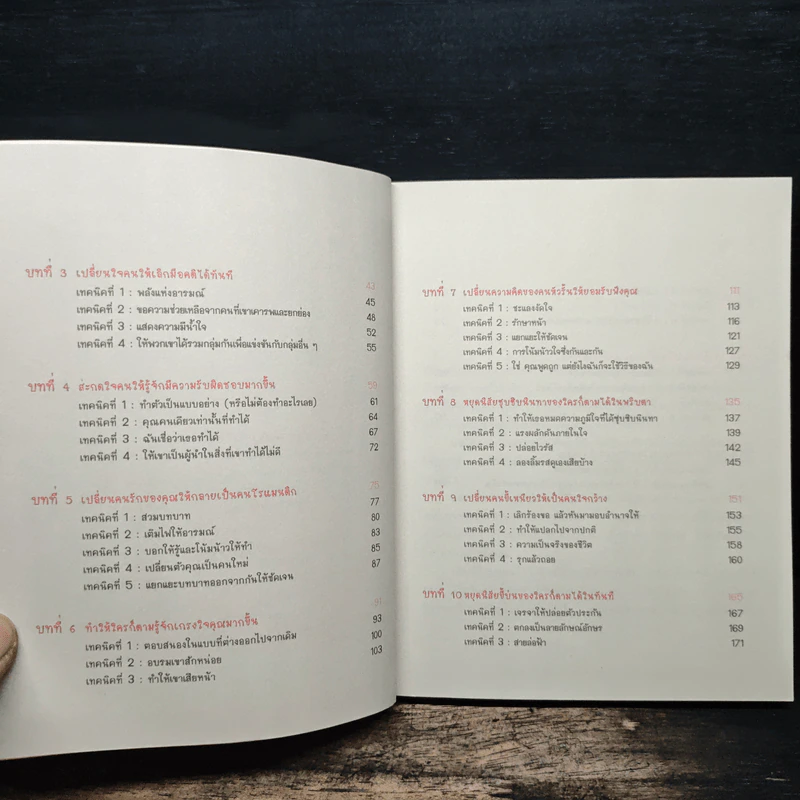 บทที่ 3 เปลี่ยนใจคนให้เลิกมีอคติได้ทันที 43
เทคนิคที่ 1 : พลังแห่งอารมณ์ 45
เทคนิคที่ 2 : ขอความช่วยเหลือจากคนที่เขาเคารพและยกย่อง 48
เทคนิคที่ 3 : แสดงความมีน้ำใจ 52
เทคนิคที่ 4 : ให้พวกเขาได้รวมกลุ่มกันเพื่อแข่งขันกับกลุ่มอื่น ๆ 55
บทที่ 4 สะกดใจคนให้รู้จักมีความรับผิดชอบมากขึ้น 59
เทคนิคที่ 1 : ทำตัวเป็นแบบอย่าง (หรือไม่ต้องทำอะไรเลย) 61
เทคนิคที่ 2 : คุณคนเดียวเท่านั้นที่ทำได้ 64
เทคนิคที่ 3 : ฉันเชื่อว่าเธอทำได้ 67
เทคนิคที่ 4 : ให้เขาเป็นผู้นำในสิ่งที่เขาทำได้ไม่ดี 72
บทที่ 5 เปลี่ยนคนรักของคุณให้กลายเป็นคนโรแมนติก 75
เทคนิคที่ 1 : สวมบทบาท 77
เทคนิคที่ 2 : เติมไฟให้อารมณ์ 80
เทคนิคที่ 3 : บอกให้รู้และโน้มน้าวให้ทำ 83
เทคนิคที่ 4 : เปลี่ยนตัวคุณเป็นคนใหม่ 85
เทคนิคที่ 5 : แยกแยะบทบาทออกจากกันให้ชัดเจน 87
บทที่ 6 ทำให้ใครก็ตามรู้จักเกรงใจคุณมากขึ้น 91
เทคนิคที่ 1 : ตอบสนองในแบบที่ต่างออกไปจากเดิม 93
เทคนิคที่ 2 : อบรมเขาสักหน่อย 100
เทคนิคที่ 3 : ทำให้เขาเสียหน้า 103
บทที่ 7 เปลี่ยนความคิดของคนหัวรั้นให้ยอมรับฟังคุณ 111
เทคนิคที่ 1 : ชะแลงงัดใจ 113
เทคนิคที่ 2 : รักษาหน้า 116
เทคนิคที่ 3 : แยกแยะให้ชัดเจน 121
เทคนิคที่ 4 : การโน้มน้าวใจซึ่งกันและกัน 127
เทคนิคที่ 5 : ใช่ คุณพูดถูก แต่ยังไงฉันก็จะใช้วิธีของฉัน 129
บทที่ 8 หยุดนิสัยซุบซิบนินทาของใครก็ตามได้ในพริบตา 135
เทคนิคที่ 1 : ทำให้เธอหมดความภูมิใจที่ได้ซุบซิบนินทา 137
เทคนิคที่ 2 : แรงผลักดันภายในใจ 139
เทคนิคที่ 3 : ปล่อยไวรัส 142
เทคนิคที่ 4 : ลองลิ้มรสดูเองเสียบ้าง 145
บทที่ 9 เปลี่ยนคนขี้เหนียวให้เป็นคนใจกว้าง 151
เทคนิคที่ 1 : เลิกร้องขอ แล้วหันมามอบอำนาจให้ 153
เทคนิคที่ 2 : ทำให้แปลกไปจากปกติ 155
เทคนิคที่ 3 : ความเป็นจริงของชีวิต 158
เทคนิคที่ 4 : รุกแล้วถอย 160
บทที่ 10 หยุดนิสัยขี้บ่นของใครก็ตามได้ในทันที 165
เทคนิคที่ 1 : เจรจาให้ปล่อยตัวประกัน 167
เทคนิคที่ 2 : ตกลงเป็นลายลักษณ์อักษร 169
เทคนิคที่ 3 : สายล่อฟ้า 171